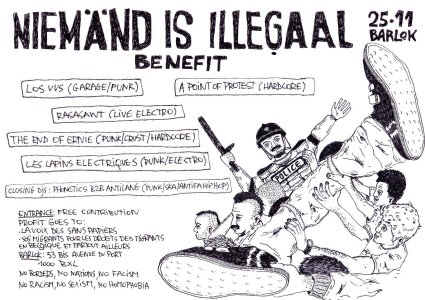 NIEMÄND IS ILLEGAAL
25-11
BARLOK
BENEFIT
LOS VVS (GARAGE/PUNK)
A POINT OF PROTEST (HARDCORE)
RASASANT (LIVE ELECTRO)
THE END OF ERNIE (PUNK/CRUST/HARDCORE)
LES LAPINS ELECTRIQUES (PUNK/ELECTRO)
CLOSING DJS: PHONETICS B2B ANTIGANG (PUNK/SKA/ANTIFA HIPHOP)
POLICE
ENTRANCE: FREE CONTRIBUTION
PROFIT GOES TO:
-LA VOIX DES SANS PAPIERS
-SOS MIGRANTS POUR LES DROITS DES MIGRANTS
EN BELGIQUE ET PARTOUT AILLEURS
BARLOK: 53 BIS AVENUE DU PORT
1000 BXL
NO BORDERS, NO NATIONS, NO FACISM
NO RACISM, NO SEXISM, NO HOMOPHOBIA